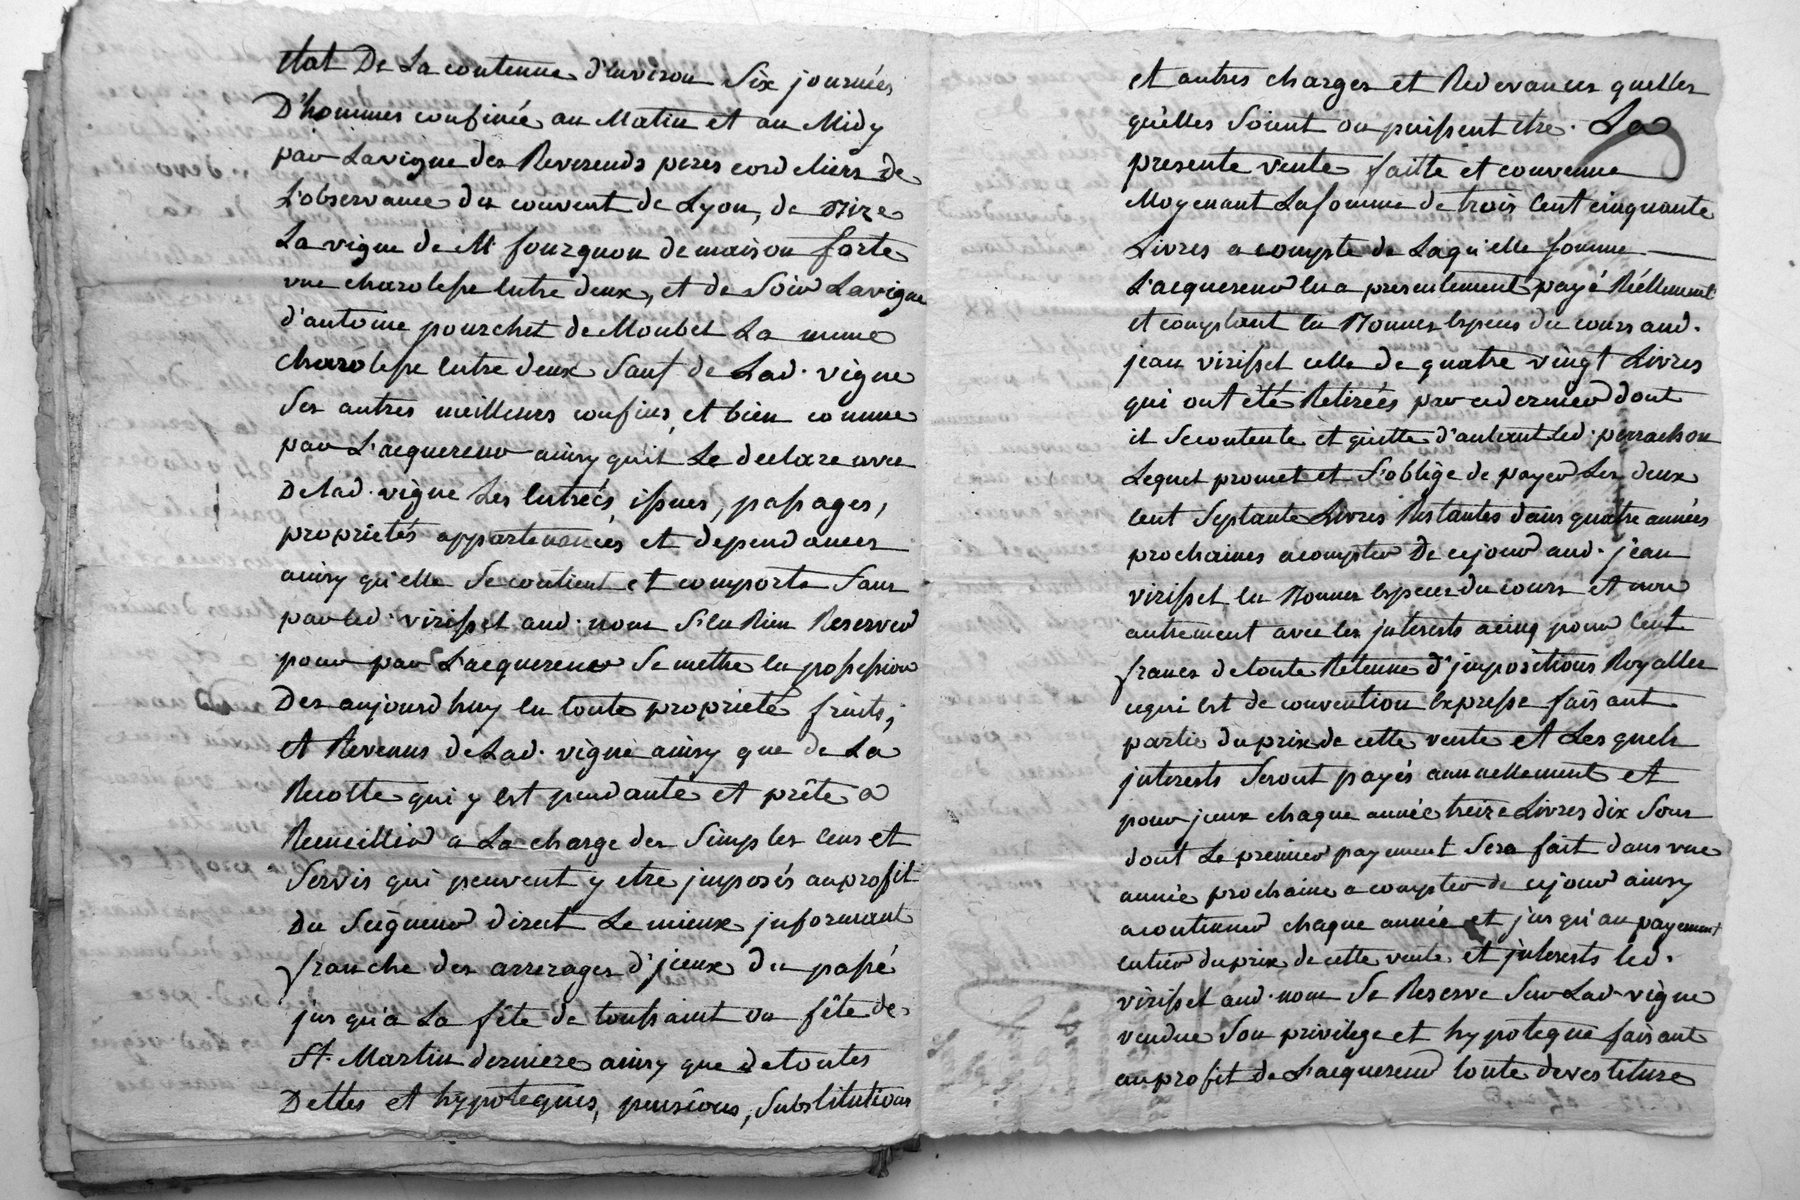 etat De La contenue d'environ Six journées
D'hommes confinée au Matin et au Midy
par Lavigne des Reverends peres cordeliers de
L'observance du couvent de Lyon, de
La vigne de Mr fourgnon de maison forte
une charolesse entre deux, et de Soir Lavigne
d'antoine pourchet de Moubet La meme
charolesse entre deux Sauf de Lad. vigne
Ses autres meilleurs confins, et bien connue
par L'acquereur ainsy quil Le declare avec
De lad. vigne Les Entreés, issues, passages,
proprietés appartenancés et dependances
ainsy qu'elle Se contient et comporte Sans
par led. virisset aud. nom S'en Rien Reserver
pour par L'acquereur Se mettre en possession
Des aujourd'huy en toute proprieté fruits,
et Revenus de Lad. vigne ainsy que de La
Recolte qui y est pendante et prête a
Recueillir a La charge des Simples Cens et
Servis qui peuvent y etre imposés au profit
Du Seigneur direct Le mieux informant
franche des arrerages d'jceux du passé
jusqu'a La fête de toussaint ou fête de
St. Martin derniere ainsy que de toutes
Dettes et hypoteques, pensions, Substitutions
et autres charges et Redevances quelles
qu'elles Soient ou puissent etre. La
presente vente faitte et convenue
Moyenant La somme de trois Cent cinquante
Livres a compte de Laquelle somme
L'acquereur en a presentement payé Réellement
et comptant en Monnes Especes du cours aud.
jean virisset celle de quatre vingt Livres
qui ont été Retireés par ce dernier dont
il Se contente et quitte d'autant led. perrachon
Lequel promet et S'oblige de payer Les deux
Cent Septante Livres Restantes dans quatre années
prochaines a compter De ce jour aud. jean
virisset en Monnes Especes du cours et non
autrement avec les jnterests a cinq pour Cent
francs de toute Retenue d'jmpositions Royalles
ce qui est de convention Expresse faisant
partie du prix de cette vente et Lesquels
jnterests Seront payés annuellement et
pour jceux chaque année treize Livres dix Sous
dont Le premier payement Sera fait dans une
année prochaine a compter de ce jour ainsy
a continuer chaque année et jusqu'au payement
entier du prix de cette vente et jnterests led.
virisset aud. nom Se Reserve Sur Lad. vigne
vendue Son privilege et hypoteque faisant
au profit de L'acquereur toute devestiture